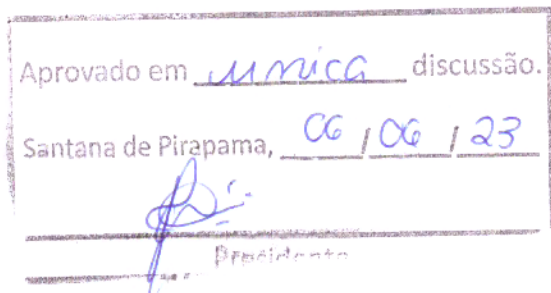 Aprovado em unica discussão.
Santana de Pirapama, 06 / 06 / 23
Presidente